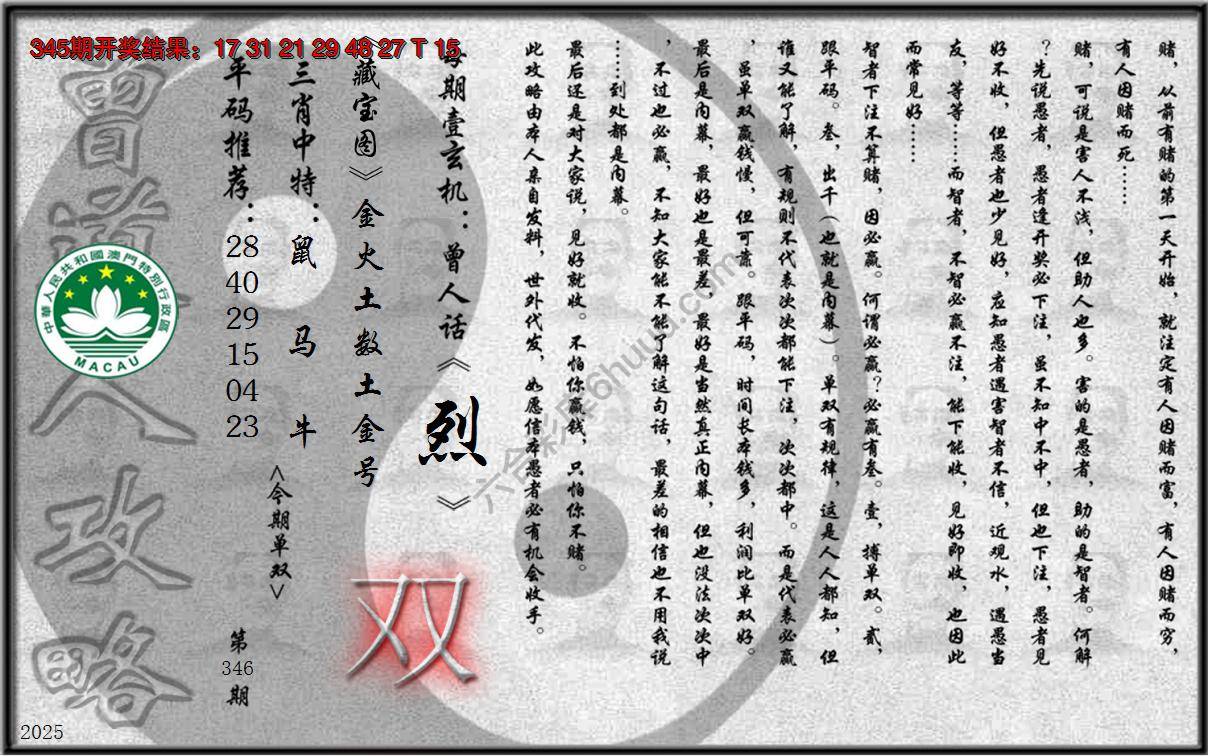 345期开奖结果：17 31 21 29 48 27 T 15
赌，从前有赌的第一天开始，就注定有人因赌而富，有人因赌而穷，
有人因赌而死……
赌，可说是害人不浅，但助人也多。害的是愚者，助的是智者。何解
？先说愚者，愚者逢开奖必下注，虽不知中不中，但也下注，愚者见
好不收，但愚者也少见好，应知愚者遇害智者不信，近观水，遇愚当
友，等等……而智者，不智必赢不注，能下能收，见好即收，也因此
而常见好……
智者下注不算赌，因必赢。何谓必赢？必赢有叁。壹，搏单双。贰，
跟平码。叁，出千（也就是内幕）。单双有规律，这是人人都知，但
谁又能了解，有规则不代表次次都能下注，次次都中。而是代表必赢
，虽单双赢钱慢，但可靠。跟平码，时间长本钱多，利润比单双好。
最后是内幕，最好也是最差，最好是当然真正内幕，但也没法次次中
，不过也必赢，不知大家能不能了解这句话，最差的相信也不用我说
……到处都是内幕。
最后还是对大家说，见好就收。不怕你赢钱，只怕你不赌。
此攻略由本人亲自发料，世外代发，如愿信本愚者必有机会收手。
每期壹玄机：曾人话《烈》
《藏宝图》金火土数土金号
三肖中特：鼠 马 牛
<今期单双>
双
平码推荐：28 40 29 15 04 23
第346期
曾道人攻略
中華人民共和國澳門特別行政區
MACAU
六合彩库6huuu.com
2025